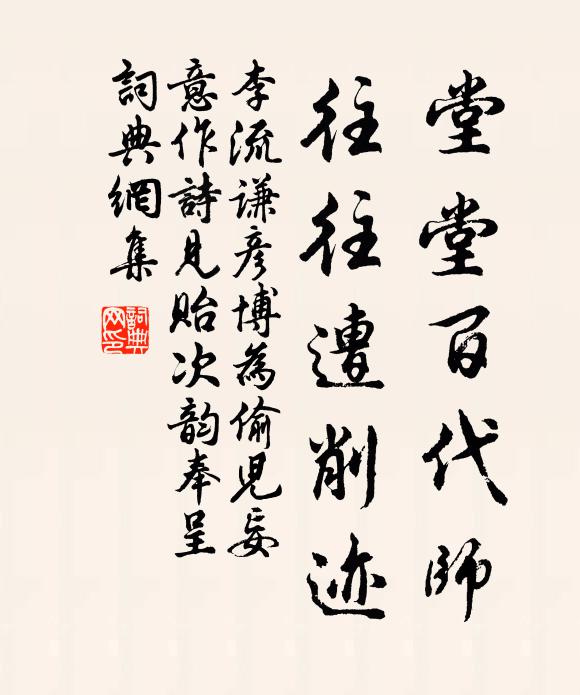 堂堂百代師
往往遭削迹
李流謙彥博為偷兒妄
意作詩見貽次韵奉呈
詞典網集
詞典网印